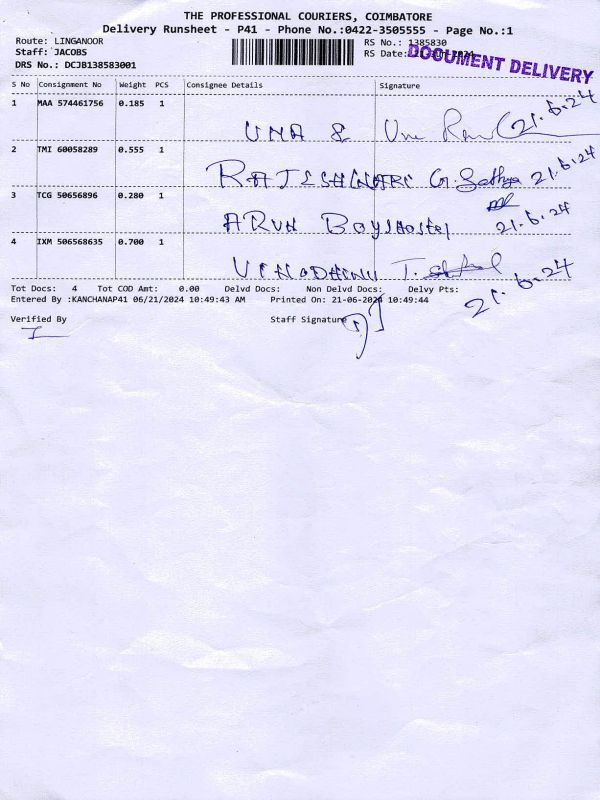 THE PROFESSIONAL COURIERS, COIMBATORE
Delivery Runsheet - P41 - Phone No.:0422-3505555 - Page No.:1
Route: LINGANOOR RS No.: 1385830
Staff: JACOBS RS Date:
DOCUMENT DELIVERY
DRS No.: DCJB138583001
S No Consignment No Weight PCS Consignee Details Signature
1 MAA 574461756 0.185 1
UMA 21.6.24
2 TMI 60058289 0.555 1
G. Sathya 21.6.24
3 TCG 50656896 0.280 1
ARUN BOYS Hostel 21.6.24
4 IXM 506568635 0.700 1
VINODHINI 21.6.24
Tot Docs: 4 Tot COD Amt: 0.00 Delvd Docs: Non Delvd Docs: Delvy Pts:
Entered By :KANCHANAP41 06/21/2024 10:49:43 AM Printed On: 21-06-2024 10:49:44
Verified By Staff Signature